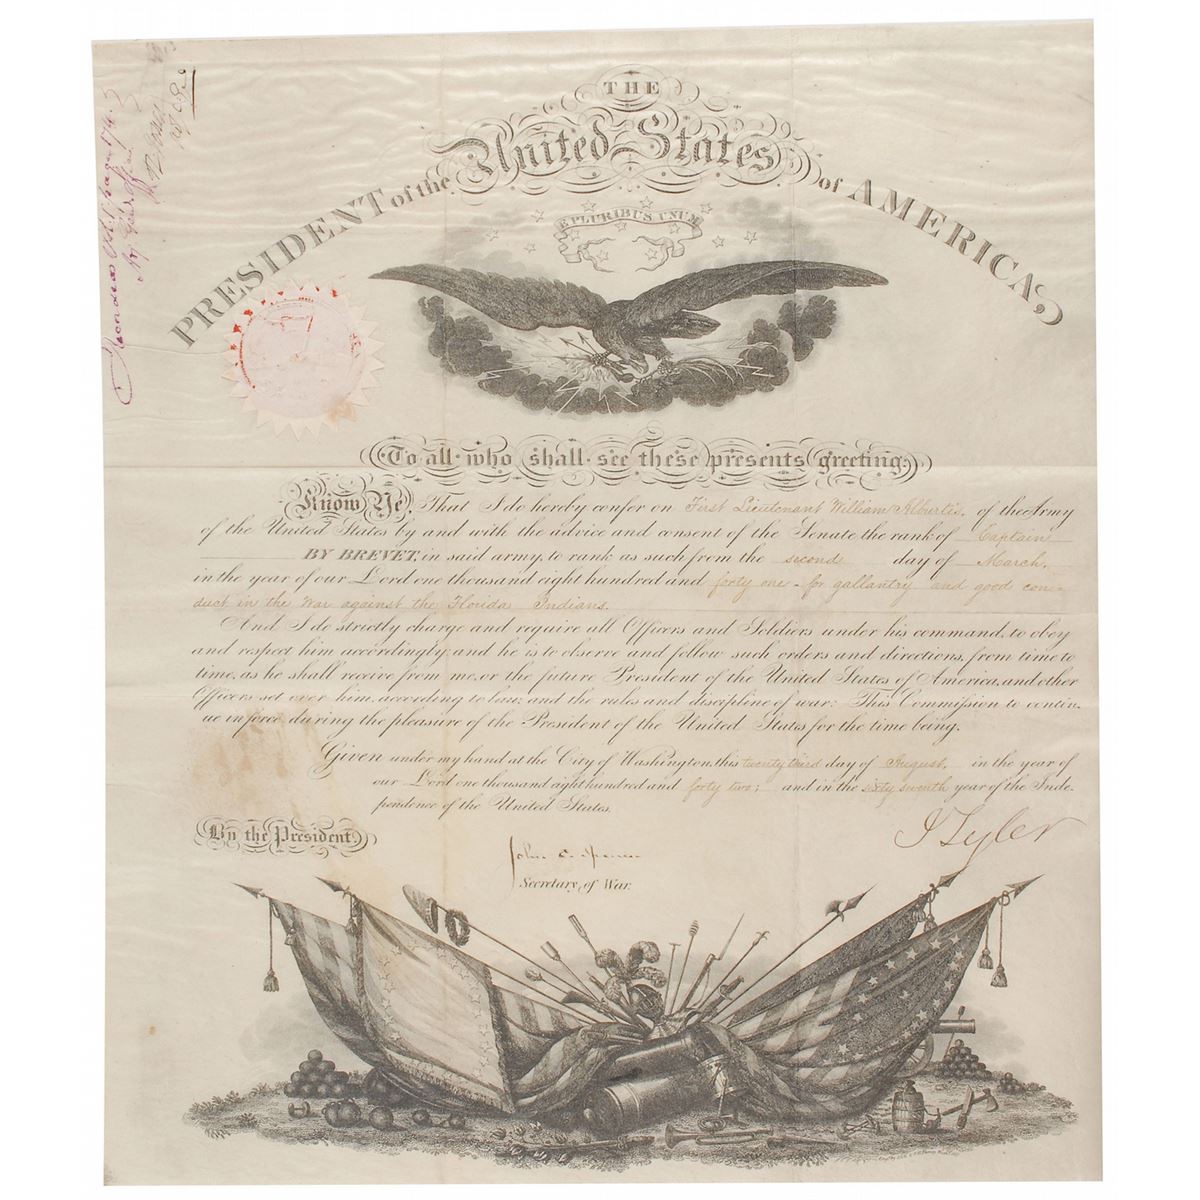 THE
United States
PRESIDENT of the of AMERICA,
E PLURIBUS UNUM
To all who shall see these presents greeting:
Know Ye, That I do hereby confer on First Lieutenant William Alburtis, of the Army
of the United States by and with the advice and consent of the Senate the rank of Captain
BY BREVET, in said army, to rank as such from the second day of March,
in the year of our Lord one thousand eight hundred and forty one - for gallantry and good con-
duct in the War against the Florida Indians.
And I do strictly charge and require all Officers and Soldiers under his command, to obey
and respect him accordingly and he is to observe and follow such orders and directions, from time to
time, as he shall receive from me, or the future President of the United States of America, and other
Officers set over him, according to law, and the rules and discipline of war: This Commission to contin-
ue in force during the pleasure of the President of the United States for the time being.
Given under my hand at the City of Washington, this twenty third day of August, in the year of
our Lord one thousand eight hundred and forty two; and in the sixty seventh year of the Inde-
pendence of the United States.
By the President,
J Tyler
John C. Spencer
Secretary of War.